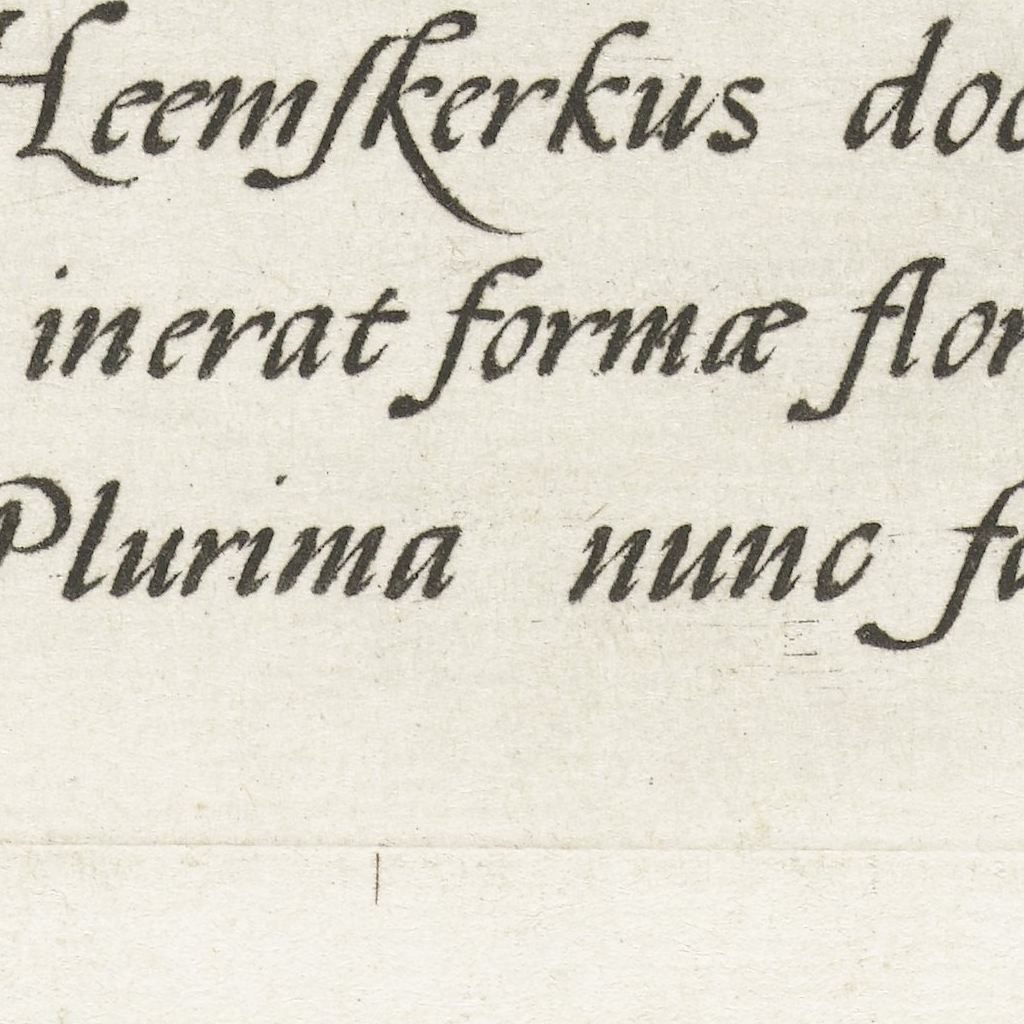 Heemſkerkus doc
inerat formæ flor
Plurima nunc fa